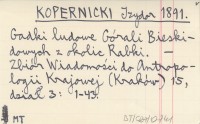 KOPERNICKI Izydor 1891.
Gadki ludowe Górali Bieski-
dowych z okolic Rabki. —
Zbiór Wiadomości do Antropo-
logii Krajowej (Kraków) 15,
dział 3: 1-43.
MT